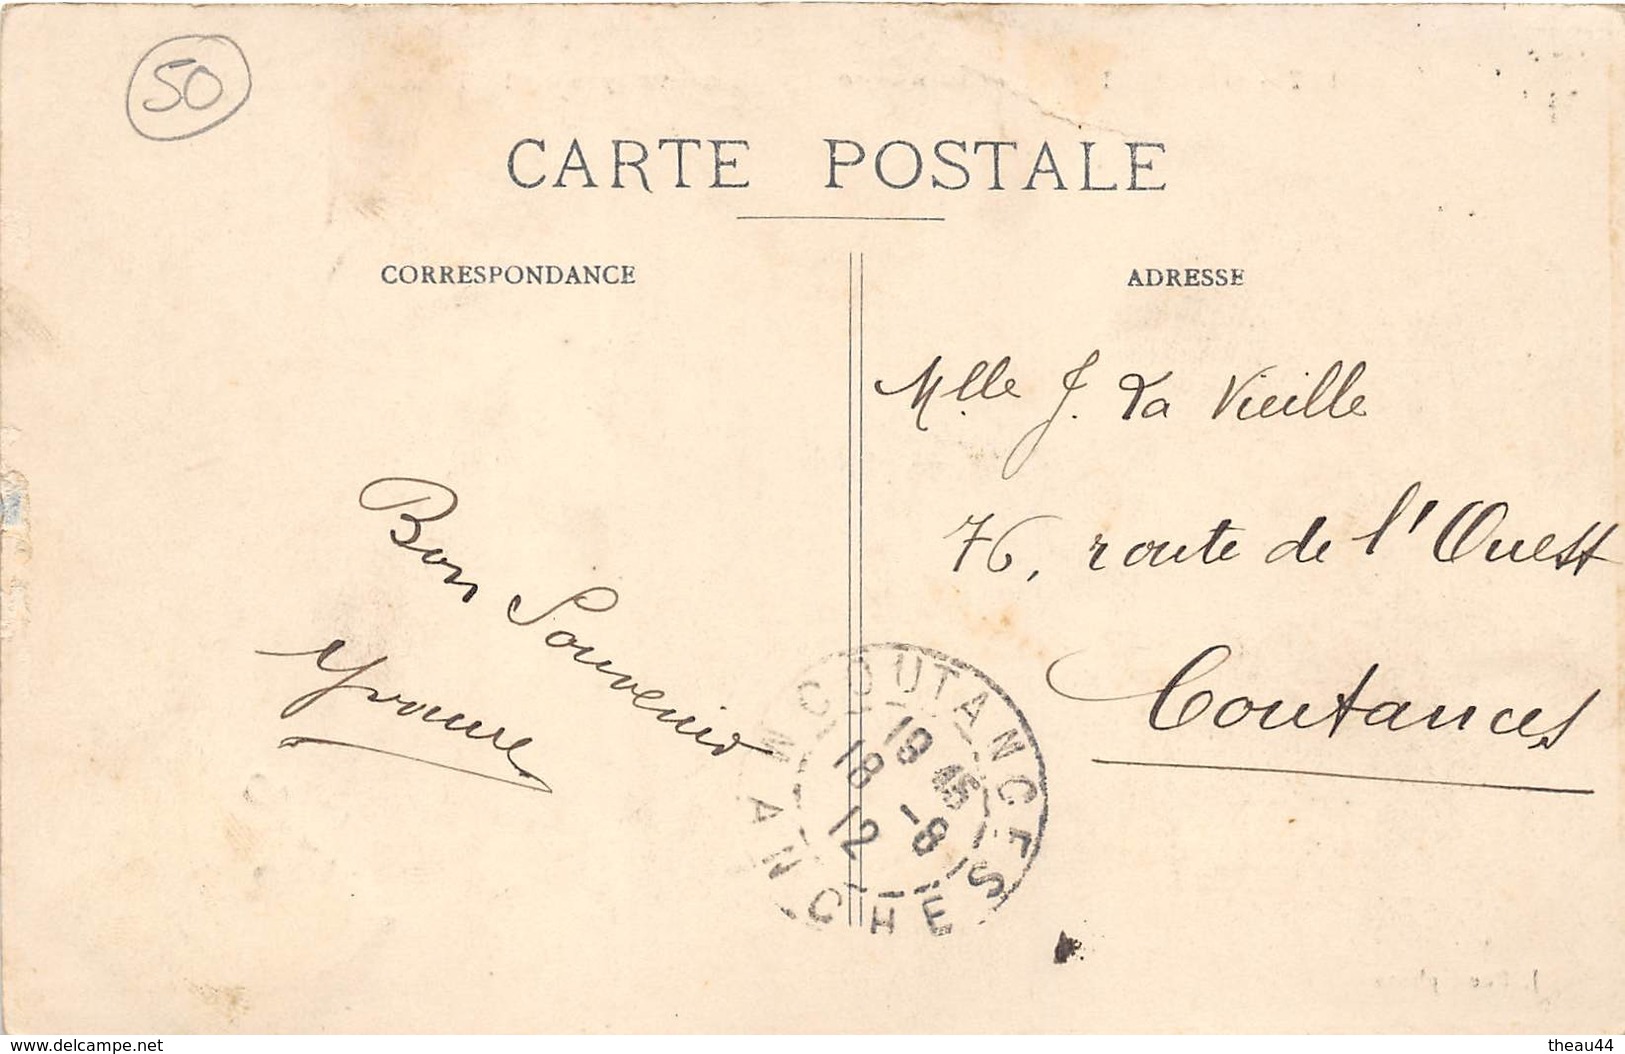 50
CARTE POSTALE
CORRESPONDANCE
ADRESSE
Mlle J. La Vieille
76, route de l'Ouest
Coutances
Bon Souvenir
Yvonne
COUTANCES
19 45
18 -8
12
MANCHE
www.delcampe.net
theau44